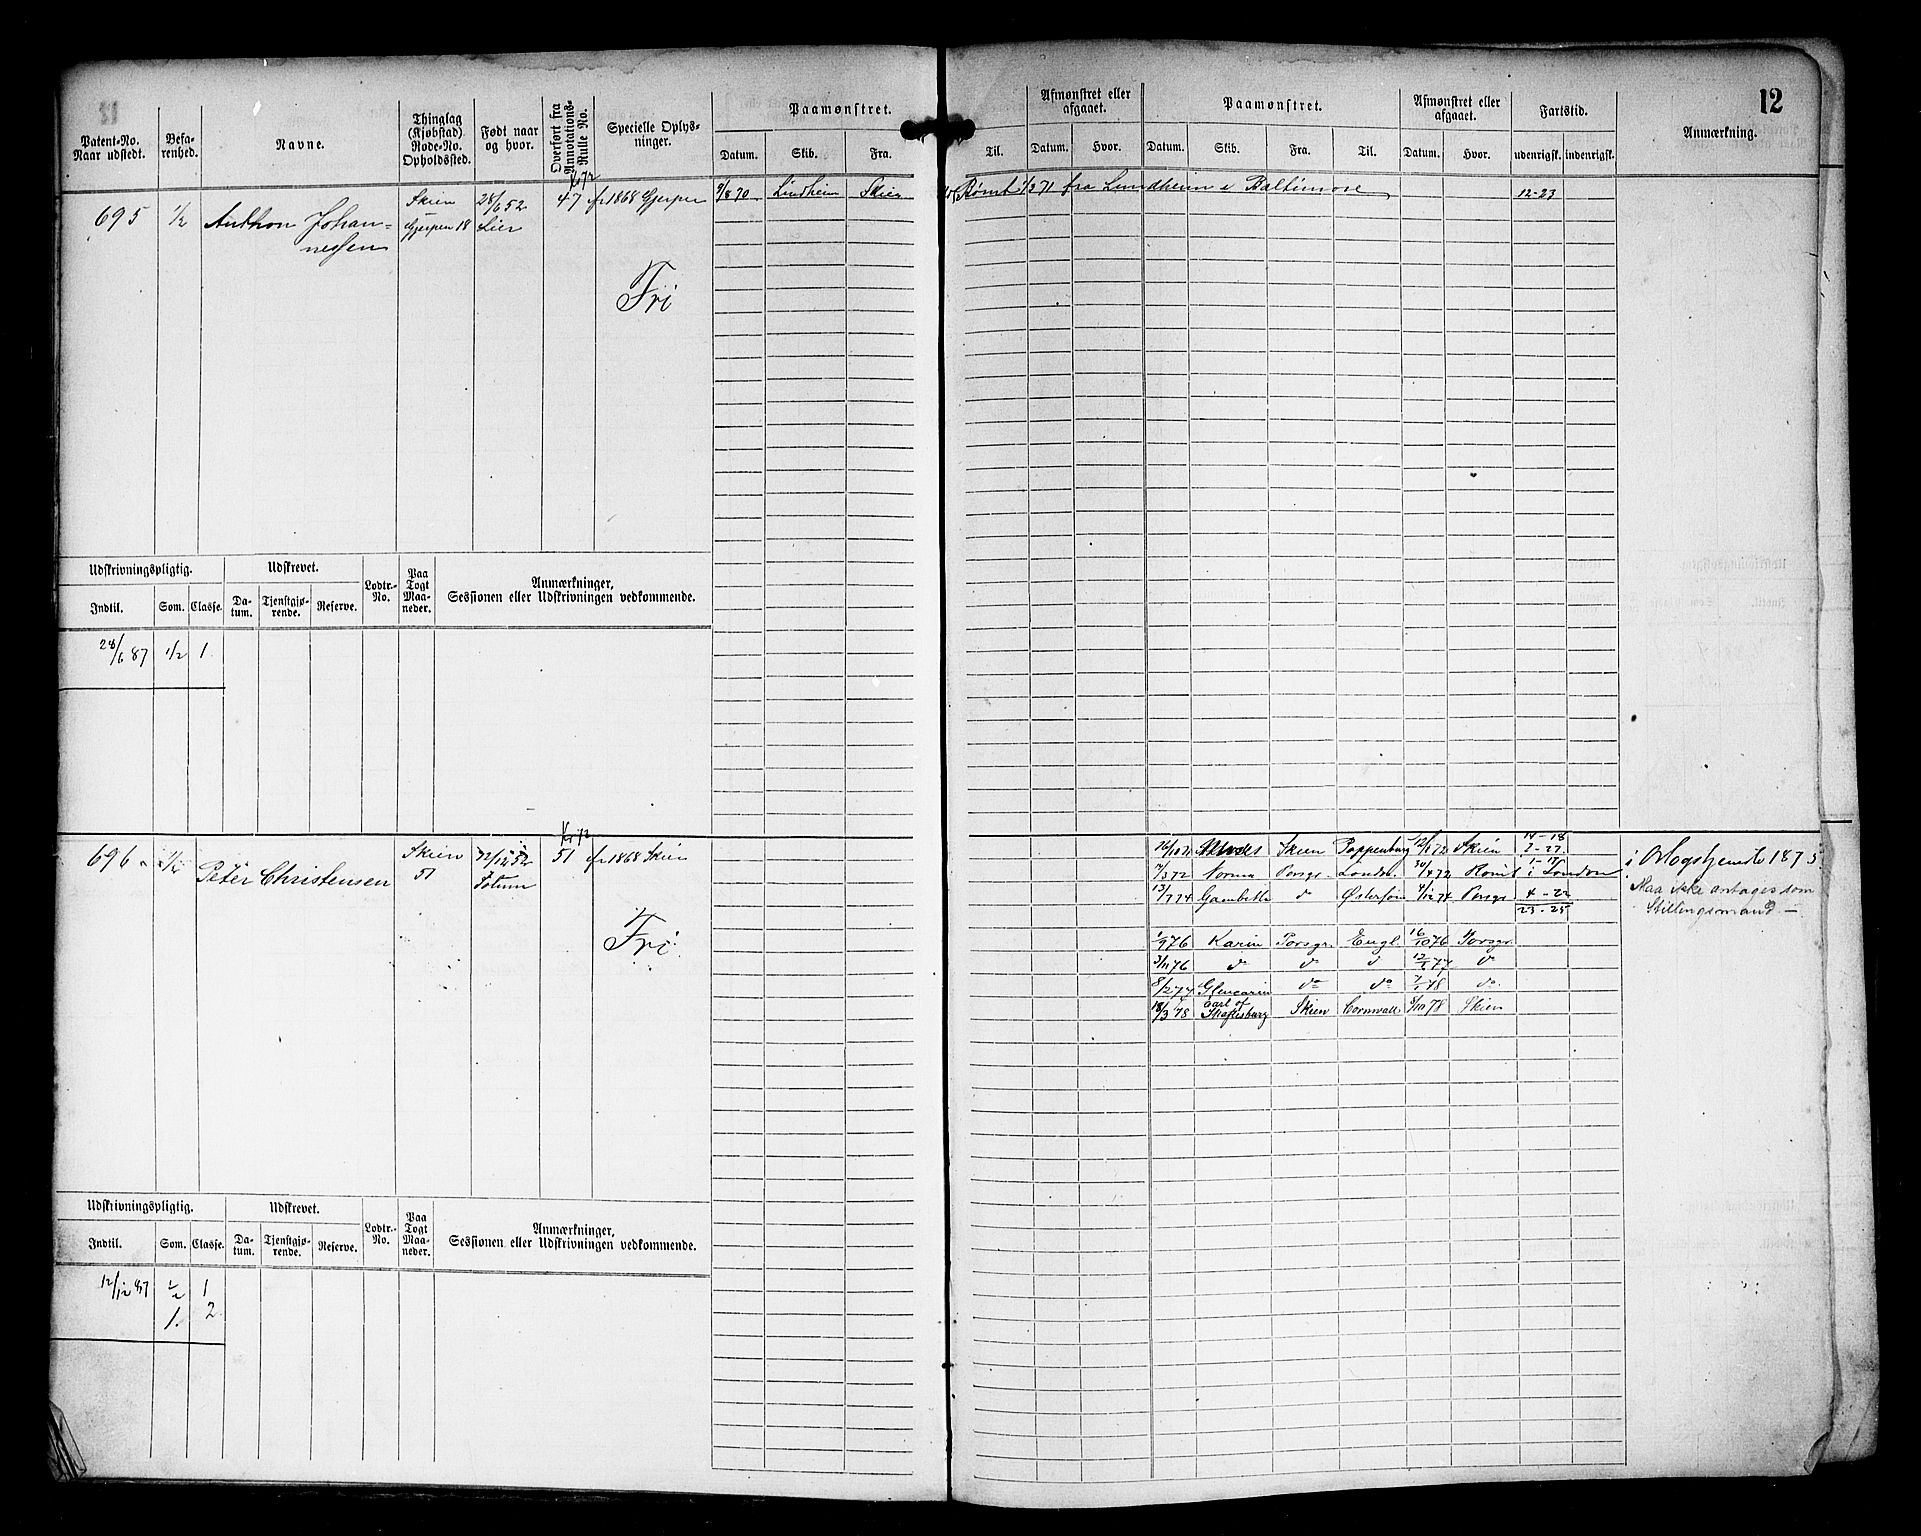 12
Patent-No. Naar udstedt.
Befarenhed.
Navne.
Thinglag (Kjøbstad) Rode-No. Opholdssted.
Født naar og hvor.
Overført fra Annotations-Rulle No.
Specielle Oplysninger.
Paamønstret.
Datum. Skib. Fra. Til.
Afmønstret eller afgaaet.
Datum. Hvor.
Paamønstret.
Datum. Skib. Fra. Til.
Afmønstret eller afgaaet.
Datum. Hvor.
Fartstid.
udenrigsk. indenrigsk.
Anmærkning.
695 1/2 Anthon Johannessen
Skien Gjerpen 18
28/6 52 Lier
47 fr 1868 Gjerpen
Fri
9/8 70 Lindheim Skien
Rømt 1/3 71 fra Lundheim i Baltimore 12-23
Udskrivningspligtig. Udskrevet. Lodtr.-No. Paa Togt Maaneder.
Anmærkninger, Sessionen eller Udskrivningen vedkommende.
Indtil. Som. Classe. Datum. Tjenstgjørende. Reserve.
28/6 87 1/2 1
696 1/2 Peter Christensen
Skien 51
12/12 52
51 fr 1868 Skien
Fri
Skien Pappenburg Skien 14-18
2-27
7/3 72 Norma Porsgr. London 30/4 72 Rømt i London
13/7 74 Gambetta d Østersøn 4/12 74 Porsgr 4-22
23-25
1/9 76 Karin Porsgr. Engl. 16/10 76 Porsgr.
3/11 76 d d d d
Glencairn do do do.
18/3 78 Earl of Shaftesburg Skien Cornwall 8/10 78 Skien
i Orlogstjeneste 1875
Maa ikke antages som
Stillingsmand —
Udskrivningspligtig. Udskrevet. Lodtr.-No. Paa Togt Maaneder.
Anmærkninger, Sessionen eller Udskrivningen vedkommende.
Indtil. Som. Classe. Datum. Tjenstgjørende. Reserve.
12/12 87 1/2 1
1. 2